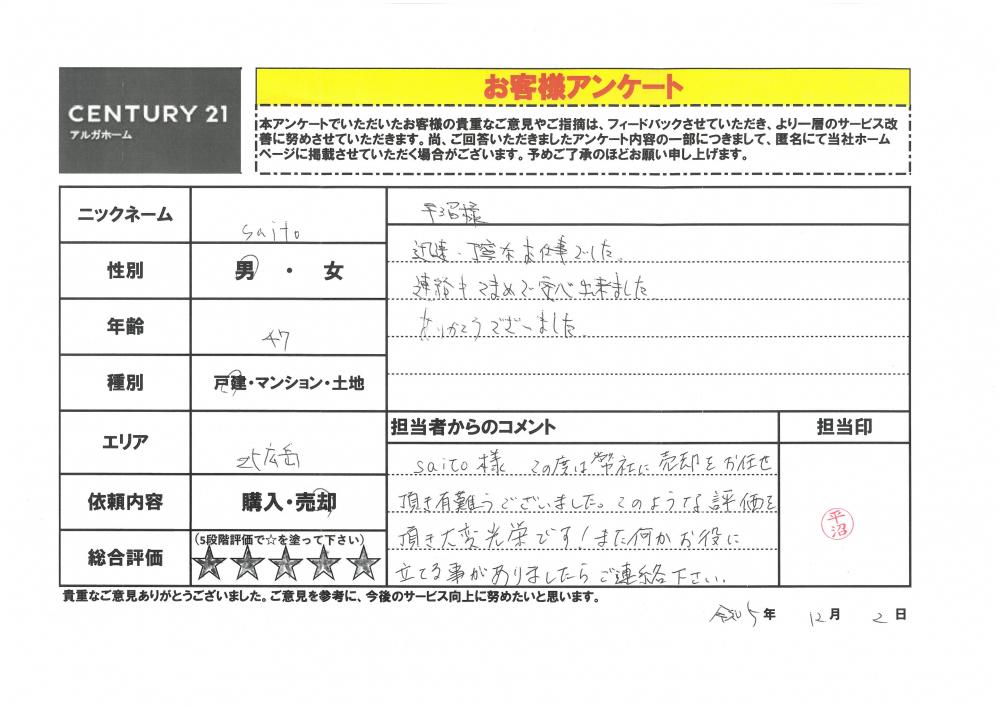 CENTURY 21
アルガホーム
お客様アンケート
本アンケートでいただいたお客様の貴重なご意見やご指摘は、フィードバックさせていただき、より一層のサービス改
善に努めさせていただきます。尚、ご回答いただきましたアンケート内容の一部につきまして、匿名にて当社ホーム
ページに掲載させていただく場合がございます。予めご了承のほどお願い申し上げます。
ニックネーム
saito
性別
男・女
年齢
47
種別
戸建・マンション・土地
エリア
北広岳
依頼内容
購入・売却
総合評価
(5段階評価で☆を塗って下さい)
平沼様
迅速・丁寧なお仕事でした。
連絡もこまめで安心出来ました
ありがとうございました。
担当者からのコメント
担当印
saito様 この度は弊社に売却をお任せ
頂き有難うございました。このような評価を
頂き大変光栄です!また何かお役に
立てる事がありましたらご連絡下さい。
平沼
貴重なご意見ありがとうございました。ご意見を参考に、今後のサービス向上に努めたいと思います。
令和5年 12月 2日